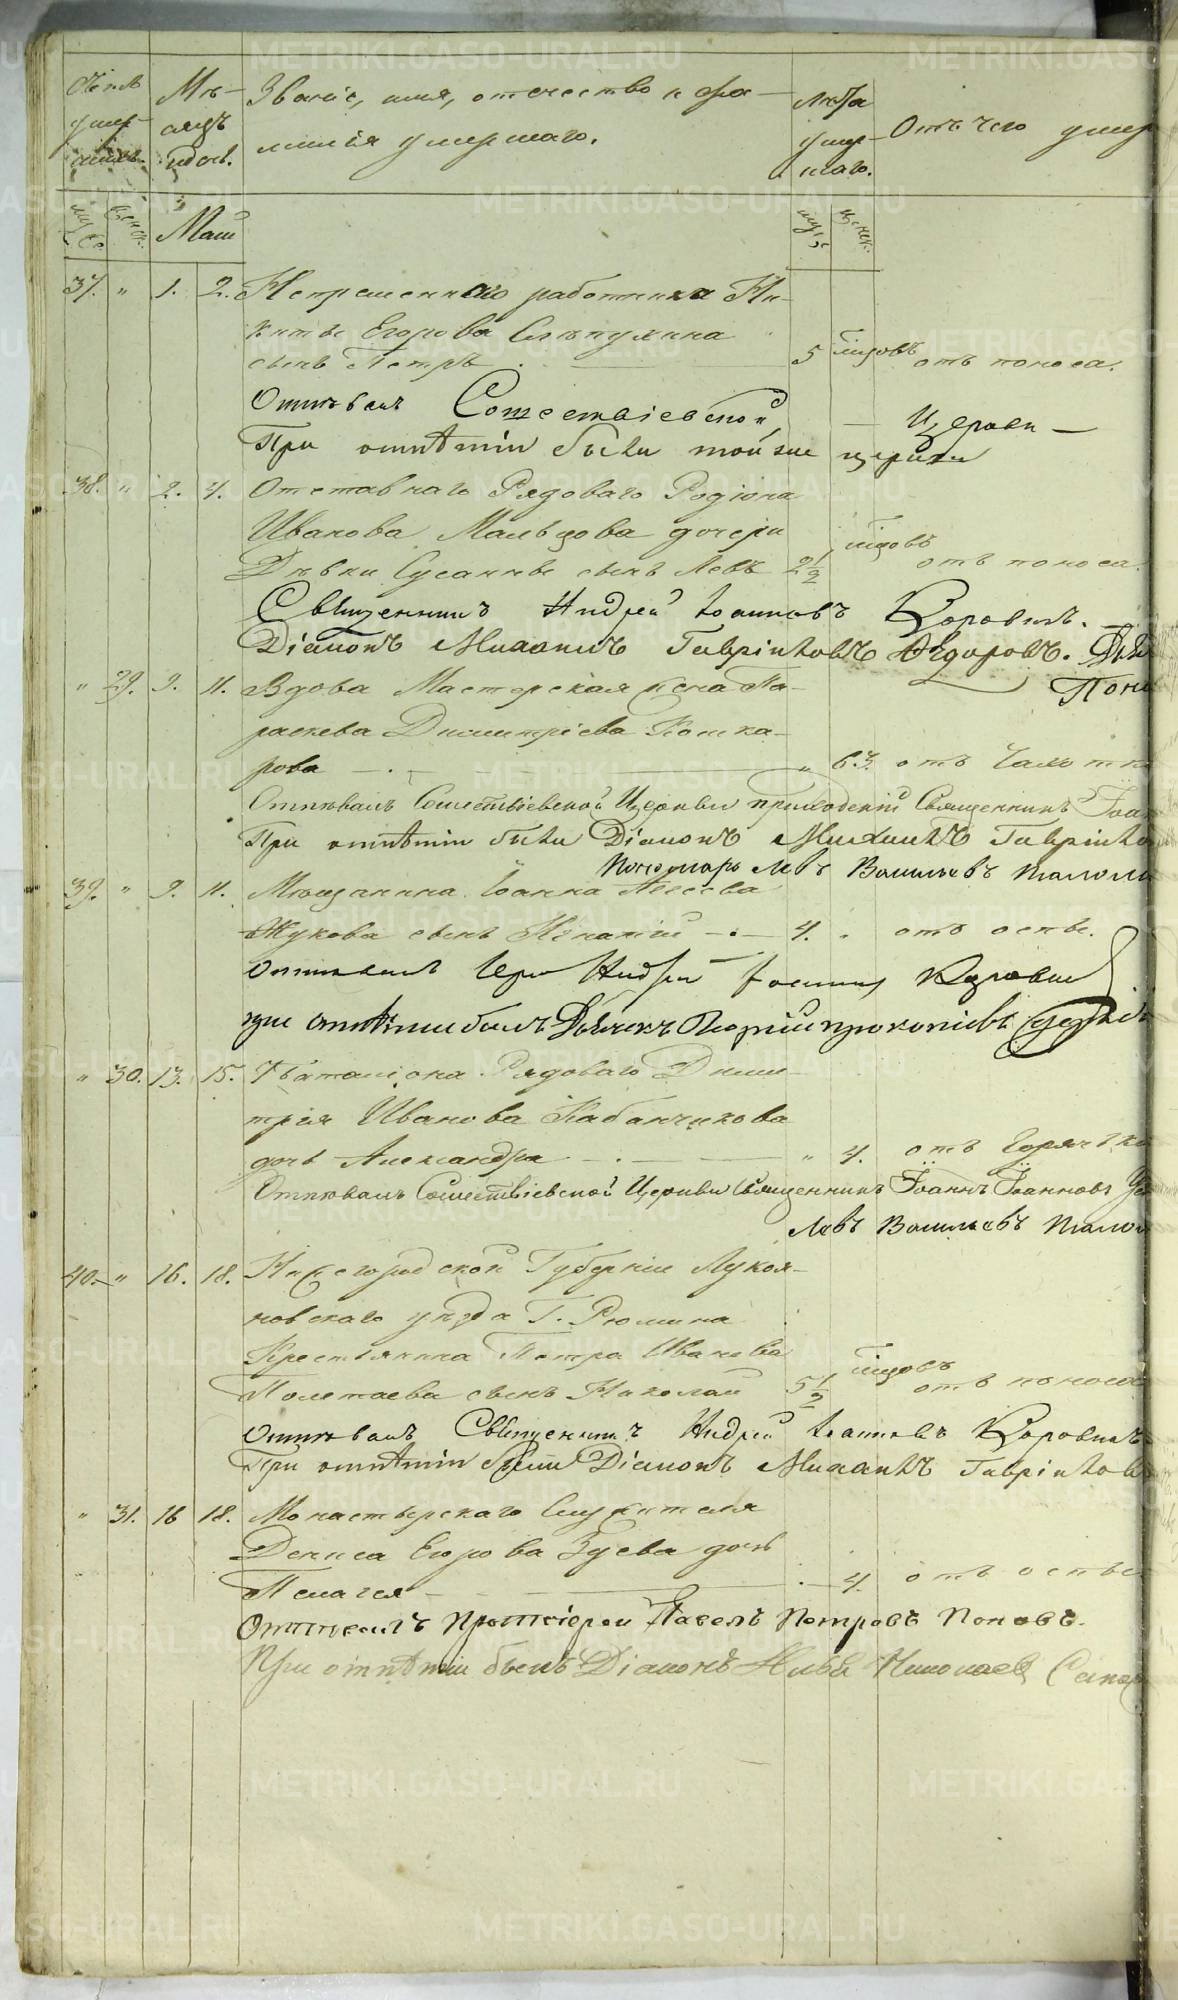 METRIKI.GASO-URAL.RU
Счетъ умершихъ. Мѣсяцъ и день. Званіе, имя, отчество и фамилія умершаго. Лѣта умершаго. Отъ чего умер
муж. женск. Май муж. женск.
37. " 1. 2. Непременнаго работника Ни-
киты Егорова Слѣпухина
сынъ Петръ 5 мѣсяцовъ отъ поноса.
Отпѣвалъ Сошествіевской Церкви
При отпѣтіи были тойже церкви
38. " 2. 4. Отставнаго Рядоваго Родіона
Иванова Мальцова дочери
Дѣвки Сусанны сынъ Левъ 2 1/2 мѣсяцовъ отъ поноса.
Священникъ Андрей Іоанновъ Коровинъ.
Діаконъ Михаилъ Гавріиловъ Ѳедоровъ.
Поно
" 29. 9. 11. Вдова Мастерская жена Па-
раскева Димитріева Кошка-
рова " 63. отъ Чахотки
Отпѣвалъ Сошествіевской Церкви приходскій Священникъ Іоан
При отпѣтіи были Діаконъ Михаилъ Гавріило
Пономарь Левъ Васильевъ
39. " 9. 11. Мѣщанина Іоанна Алексѣева
Жукова сынъ Игнатій 4. " отъ оспы.
Отпѣвалъ Іерей Андрей Іоанновъ Коровин
при отпѣтіи былъ Дьячекъ Георгій Прокопіевъ
" 30. 13. 15. Баталіона Рядоваго Дими-
трія Иванова Кабанчикова
дочь Александра " 4. отъ Горячки
Отпѣвалъ Сошествіевской Церкви Священникъ Іоаннъ Іоанновъ
Левъ Васильевъ
40. " 16. 18. Нижегородской Губерніи Лукоя-
новскаго уѣзда Г. Рюмина
Крестьянина Петра Иванова
Полетаева сынъ Николай 5 1/2 мѣсяцовъ отъ поноса
Отпѣвалъ Священникъ Андрей Іоанновъ Коровинъ
При отпѣтіи были Діаконъ Михаилъ Гавріилов
" 31. 16 18. Монастырскаго Служителя
Дениса Егорова Зуева дочь
Пелагея 4. отъ оспы
Отпѣвалъ Протоіерей Павелъ Петровъ Поповъ.
При отпѣтіи былъ Діаконъ Илья Николаев